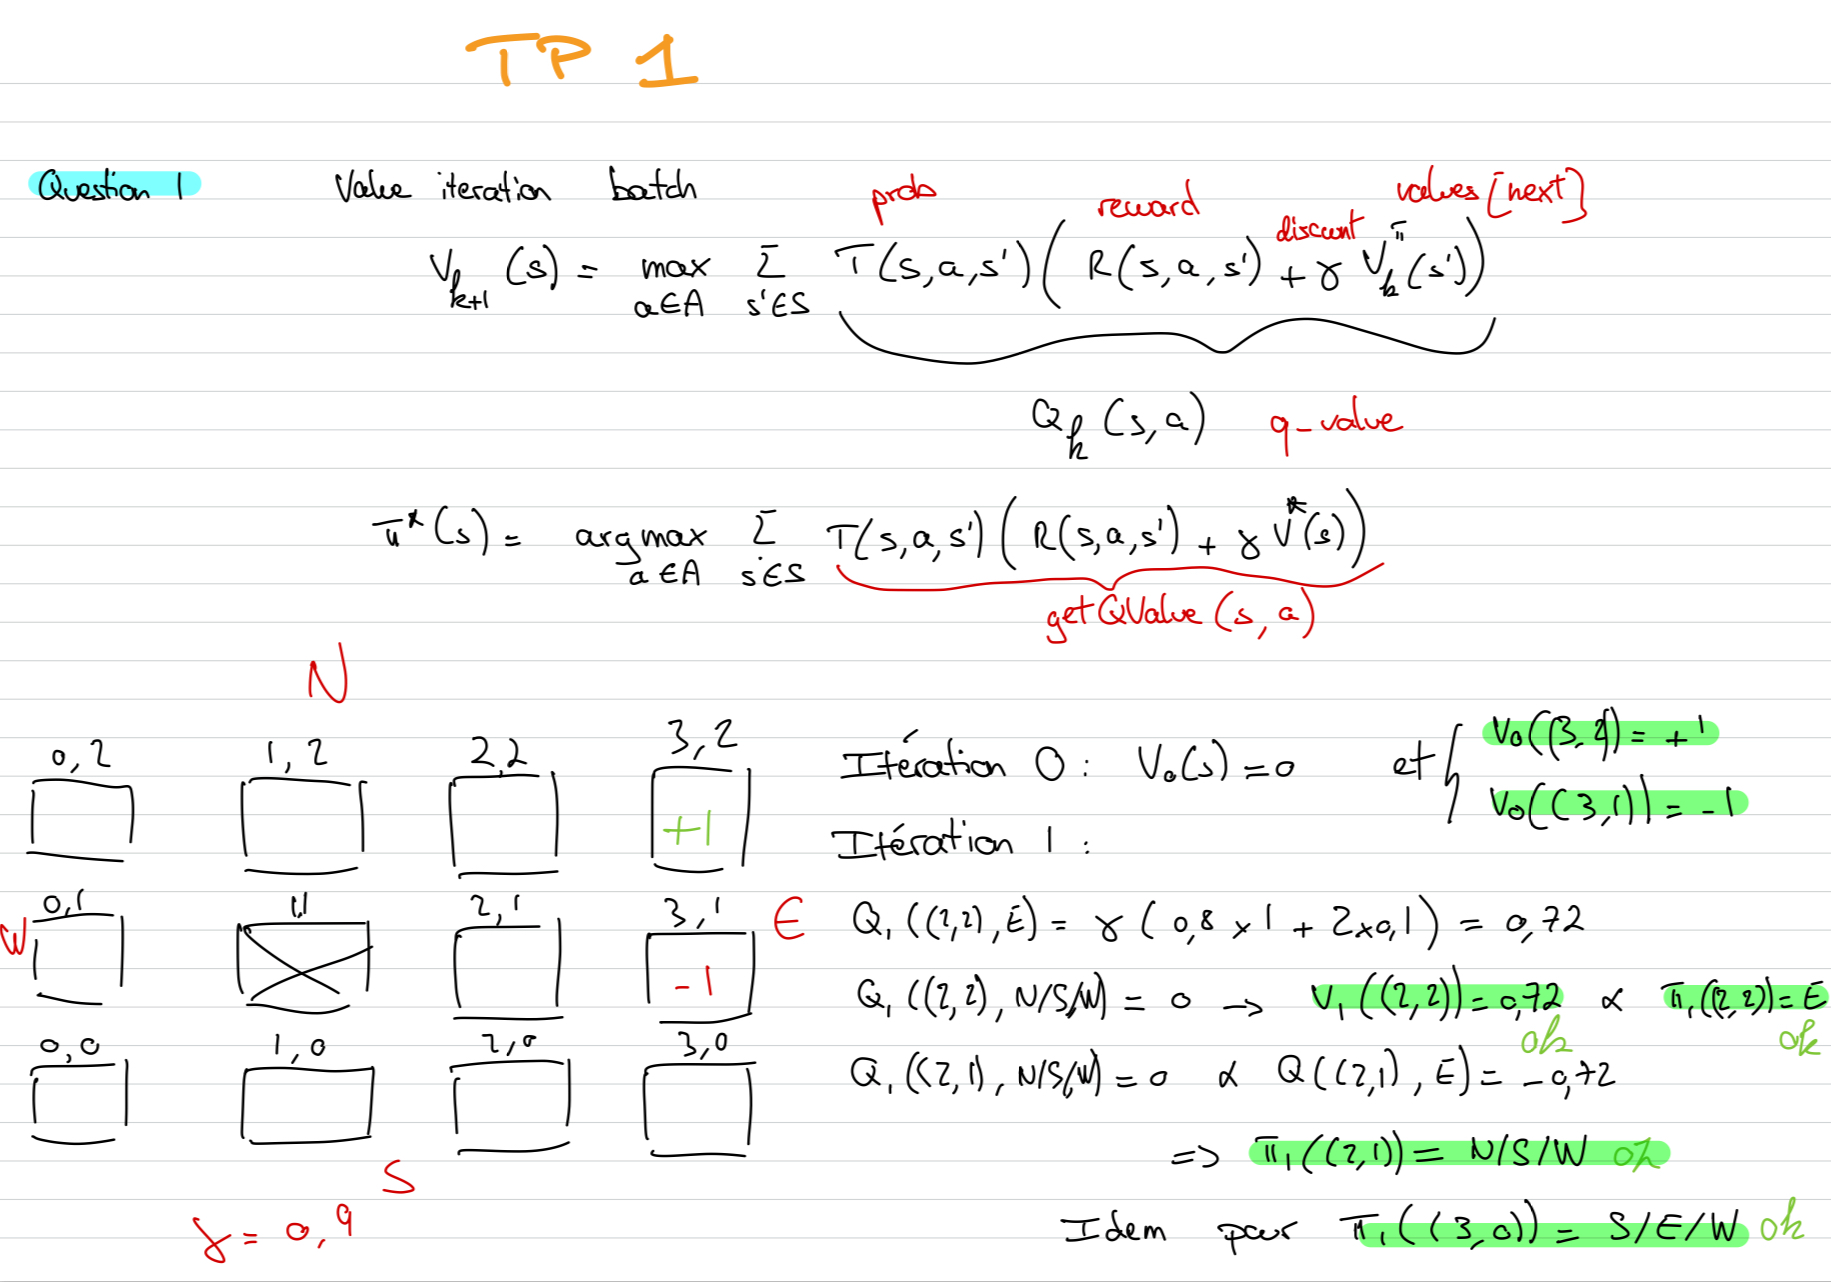 TP 1
Question 1 Value iteration batch
prob reward discount values[next]
V_{k+1}(s) = max_{a∈A} Σ_{s'∈S} T(s,a,s') ( R(s,a,s') + γ V^π_k(s') )
Q_k(s,a) q-value
π*(s) = argmax_{a∈A} Σ_{s'∈S} T(s,a,s') ( R(s,a,s') + γ V*(s) )
getQValue(s,a)
N
0,2 1,2 2,2 3,2
+1
W 0,1 1,1 2,1 3,1 E
-1
0,0 1,0 2,0 3,0
S
γ = 0,9
Itération 0 : V₀(s) = 0 et { V₀((3,2) = +1
V₀((3,1)) = -1
Itération 1 :
Q₁((2,2),E) = γ (0,8 × 1 + 2×0,1) = 0,72
Q₁((2,2), N/S/W) = 0 → V₁((2,2)) = 0,72 ok & π₁((2,2)) = E ok
Q₁((2,1), N/S/W) = 0 & Q((2,1), E) = -0,72
=> π₁((2,1)) = N/S/W ok
Idem pour π₁((3,0)) = S/E/W ok